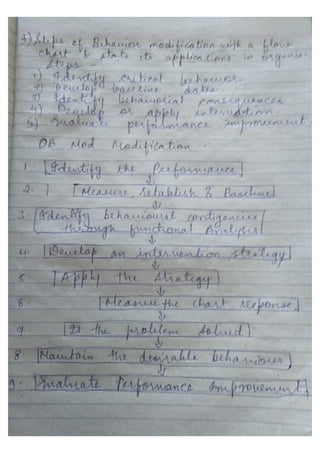 3) Steps of Behavior modification with a flow
chart & state its applications in organis.
Steps :-
1) Identify critical behavior
2) Develop baseline dates
3) Identify behavioral consequences
4) Develop or apply intervation
5) Evaluate performance improvement
OB Mod Modification :-
1. [Identify the Performance]
2. ] [Measure, Establish & Baseline]
3. [Identify behavioural contigencies
through functional Analysis]
4. [Develop an intervention strategy]
5. [Apply the strategy]
6 [Measure the chart response]
7. [Is the problem solved]
8. [Maintain the desirable behaviour]
9. [Evaluate Performance Improvement]